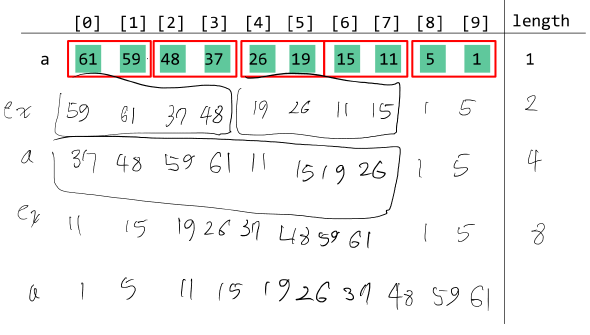 [0] [1] [2] [3] [4] [5] [6] [7] [8] [9] length
a 61 59 48 37 26 19 15 11 5 1 1
ex 59 61 37 48 19 26 11 15 1 5 2
a 37 48 59 61 11 15 19 26 1 5 4
ex 11 15 19 26 37 48 59 61 1 5 8
a 1 5 11 15 19 26 37 48 59 61